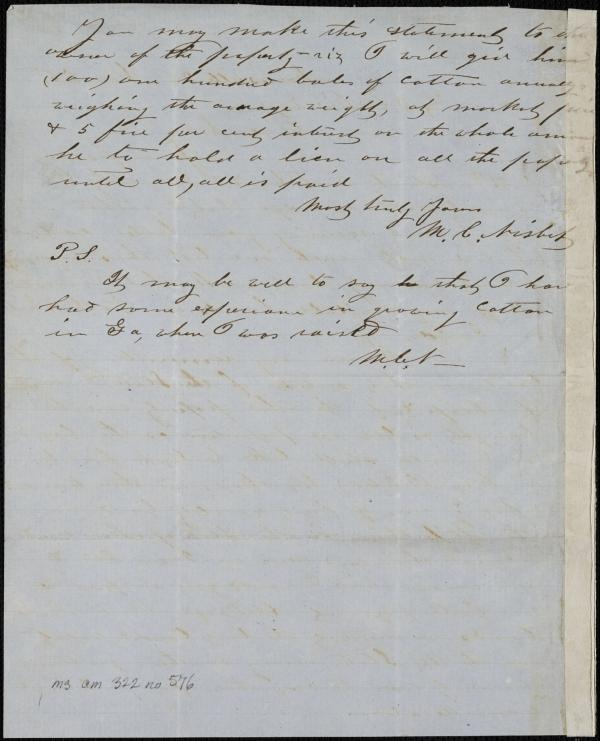 You may make this statement to the
owner of the property - viz I will give him
(100) one hundred bales of cotton annualy
weighing the average weight, at market price
& 5 five per cent interest on the whole amou
he to hold a lien on all the prope
until all, all is paid
Most truly Yours
M. C. Nisbet
P.S.
It may be well to say that I hav
had some experience in growing Cotton
in Ga, where I was raised
M.C.N—
ms am 322 no 576